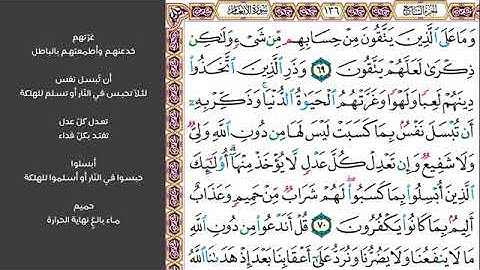 الجزء السابع
١٣٦
سورة الأنعام
وَمَا عَلَى ٱلَّذِينَ يَتَّقُونَ مِنْ حِسَابِهِم مِّن شَىْءٍ وَلَٰكِن
ذِكْرَىٰ لَعَلَّهُمْ يَتَّقُونَ ٦٩ وَذَرِ ٱلَّذِينَ ٱتَّخَذُوا۟
دِينَهُمْ لَعِبًا وَلَهْوًا وَغَرَّتْهُمُ ٱلْحَيَوٰةُ ٱلدُّنْيَا وَذَكِّرْ بِهِۦٓ
أَن تُبْسَلَ نَفْسٌۢ بِمَا كَسَبَتْ لَيْسَ لَهَا مِن دُونِ ٱللَّهِ وَلِىٌّ
وَلَا شَفِيعٌ وَإِن تَعْدِلْ كُلَّ عَدْلٍ لَّا يُؤْخَذْ مِنْهَآ أُو۟لَٰٓئِكَ
ٱلَّذِينَ أُبْسِلُوا۟ بِمَا كَسَبُوا۟ لَهُمْ شَرَابٌ مِّنْ حَمِيمٍ وَعَذَابٌ
أَلِيمٌۢ بِمَا كَانُوا۟ يَكْفُرُونَ ٧٠ قُلْ أَنَدْعُوا۟ مِن دُونِ ٱللَّهِ
مَا لَا يَنفَعُنَا وَلَا يَضُرُّنَا وَنُرَدُّ عَلَىٰٓ أَعْقَابِنَا بَعْدَ إِذْ هَدَىٰنَا ٱللَّهُ
غرّتهم
خدعتهم وأطمعتهم بالباطل
أن تُبسل نفس
لئلاّ تحبس في النّار أو تسلم للهلكة
تعدل كلّ عدل
تفتد بكلّ فداء
أبسلوا
حبسوا في النّار أو أسلموا للهلكة
حميم
ماء بالغ نهاية الحرارة